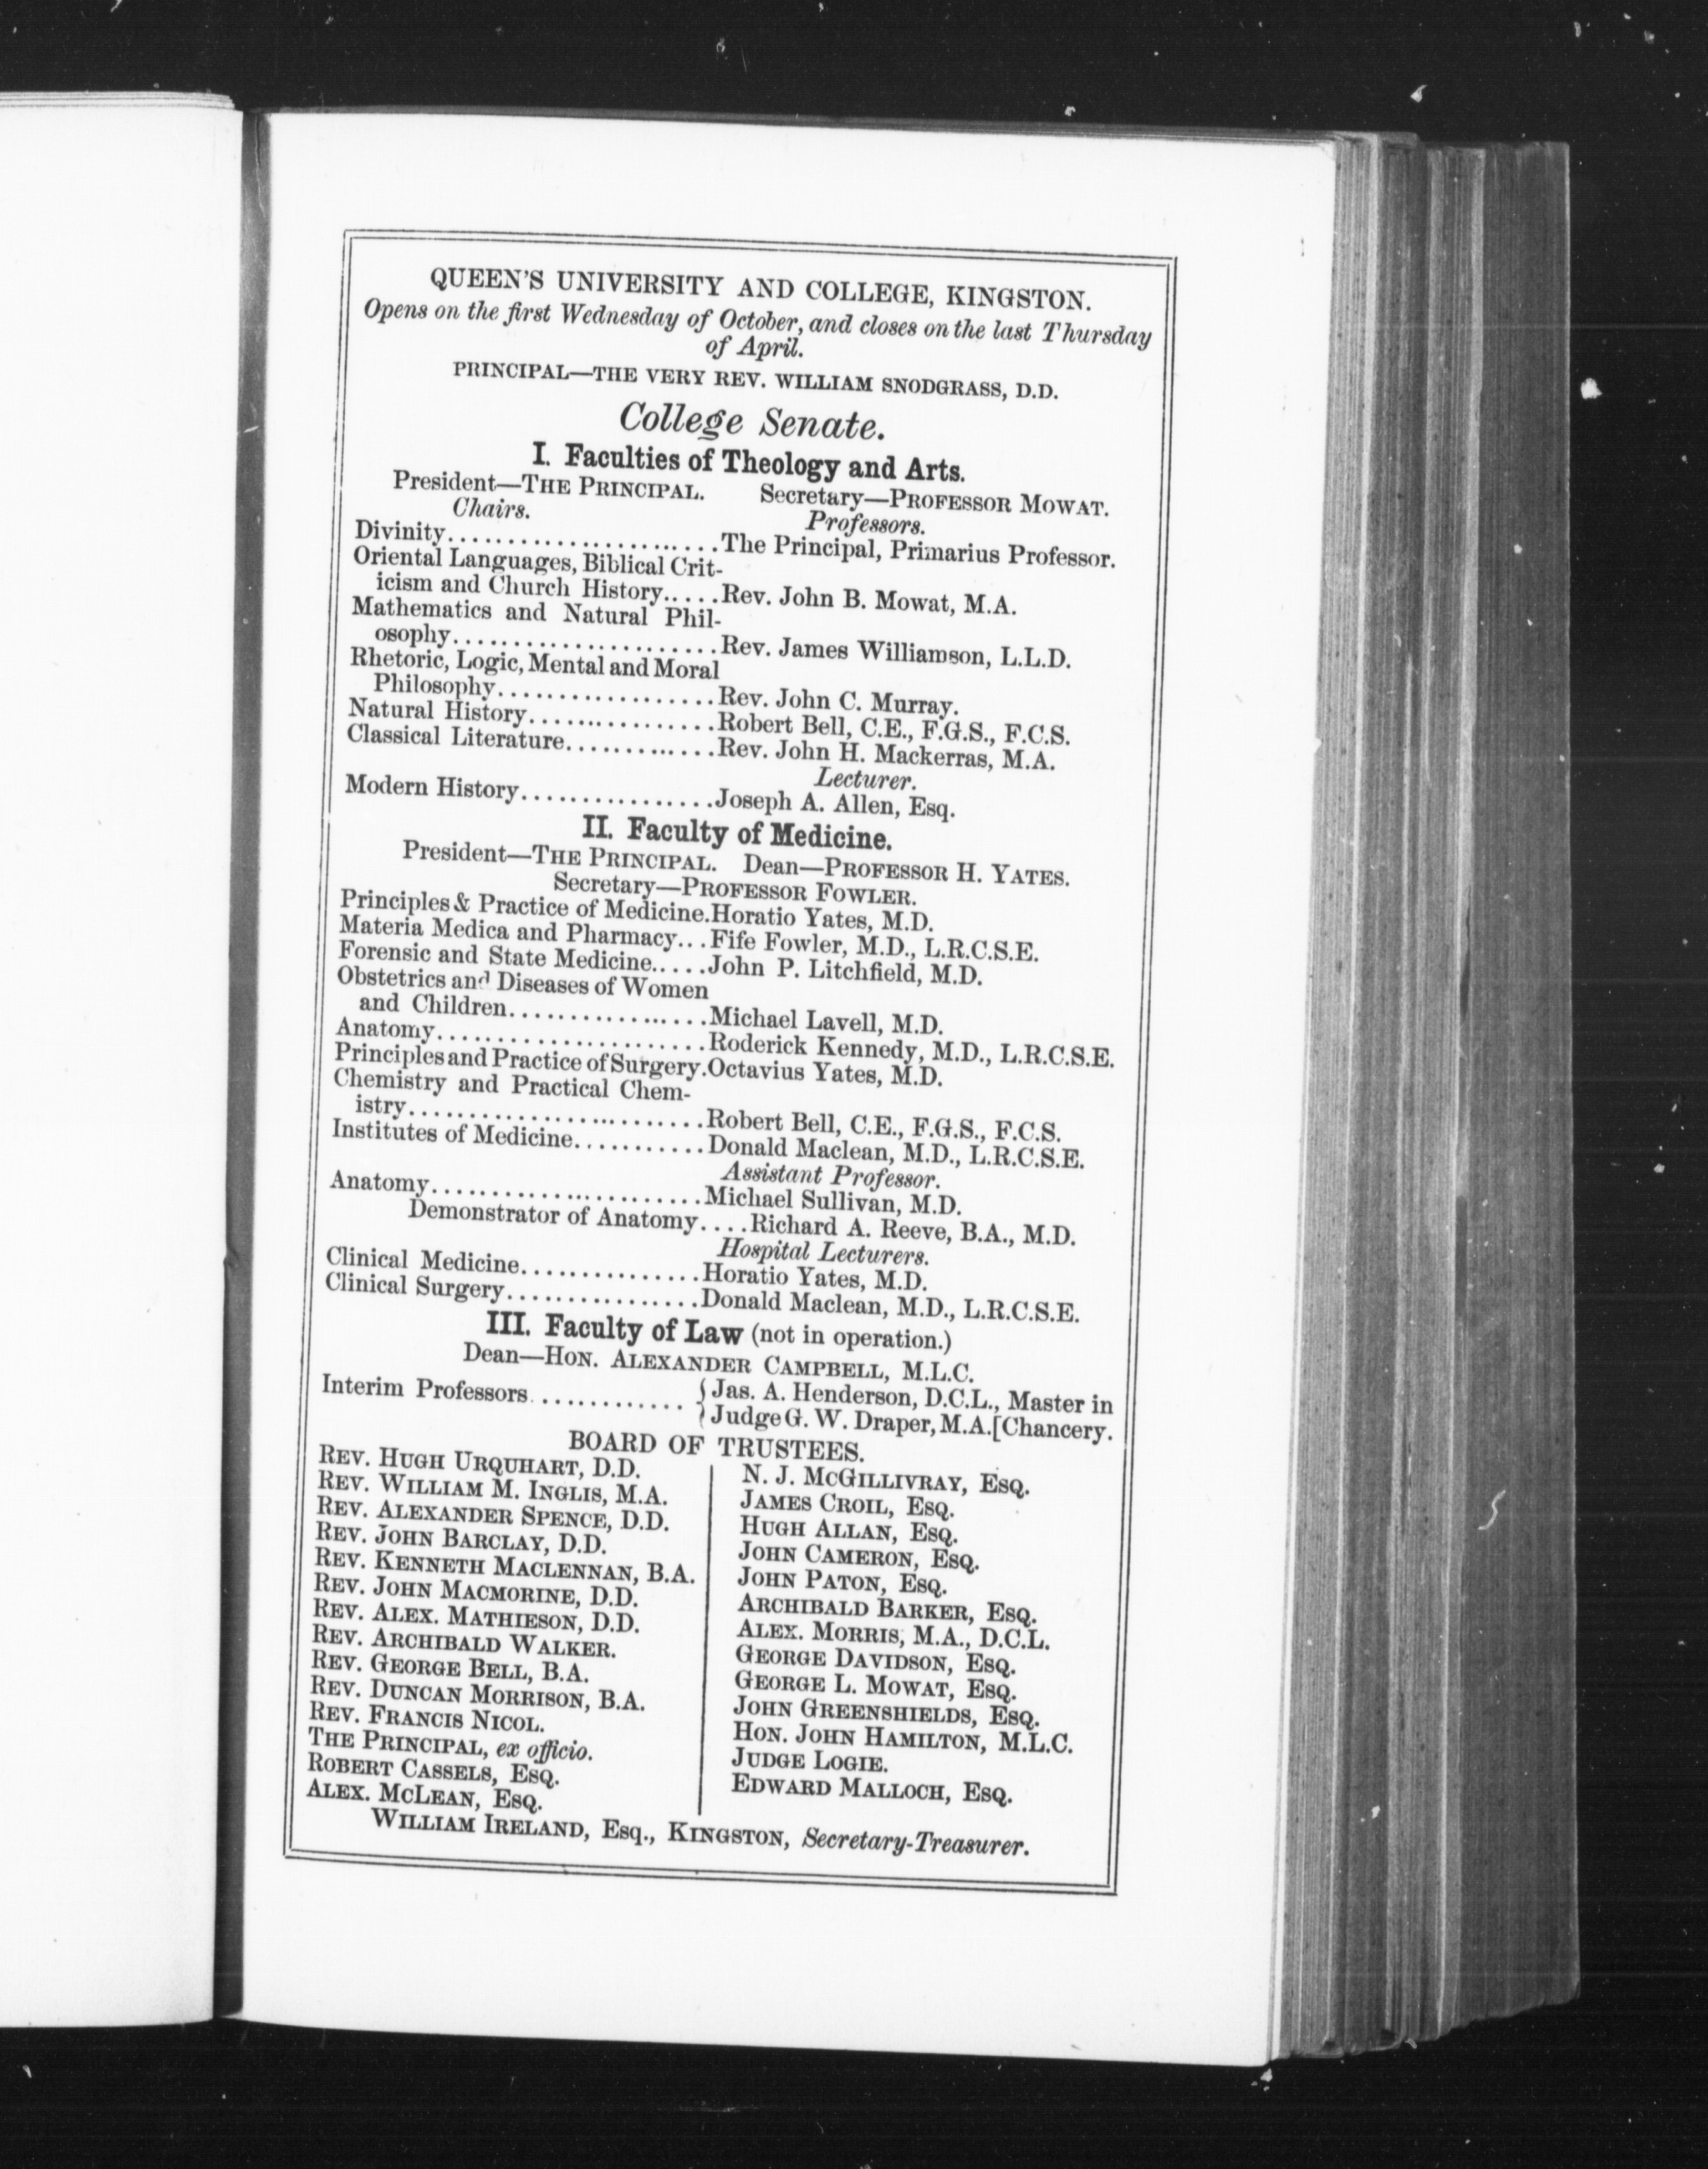 QUEEN'S UNIVERSITY AND COLLEGE, KINGSTON.
Opens on the first Wednesday of October, and closes on the last Thursday
of April.
PRINCIPAL—THE VERY REV. WILLIAM SNODGRASS, D.D.
College Senate.
I. Faculties of Theology and Arts.
President—THE PRINCIPAL. Secretary—PROFESSOR MOWAT.
Chairs. Professors.
Divinity.......................The Principal, Primarius Professor.
Oriental Languages, Biblical Crit-
icism and Church History.....Rev. John B. Mowat, M.A.
Mathematics and Natural Phil-
osophy......................Rev. James Williamson, L.L.D.
Rhetoric, Logic, Mental and Moral
Philosophy..................Rev. John C. Murray.
Natural History................Robert Bell, C.E., F.G.S., F.C.S.
Classical Literature.............Rev. John H. Mackerras, M.A.
Lecturer.
Modern History................Joseph A. Allen, Esq.
II. Faculty of Medicine.
President—THE PRINCIPAL. Dean—PROFESSOR H. YATES.
Secretary—PROFESSOR FOWLER.
Principles & Practice of Medicine.Horatio Yates, M.D.
Materia Medica and Pharmacy...Fife Fowler, M.D., L.R.C.S.E.
Forensic and State Medicine.....John P. Litchfield, M.D.
Obstetrics and Diseases of Women
and Children.................Michael Lavell, M.D.
Anatomy.......................Roderick Kennedy, M.D., L.R.C.S.E.
Principles and Practice of Surgery.Octavius Yates, M.D.
Chemistry and Practical Chem-
istry.........................Robert Bell, C.E., F.G.S., F.C.S.
Institutes of Medicine...........Donald Maclean, M.D., L.R.C.S.E.
Assistant Professor.
Anatomy.......................Michael Sullivan, M.D.
Demonstrator of Anatomy....Richard A. Reeve, B.A., M.D.
Hospital Lecturers.
Clinical Medicine...............Horatio Yates, M.D.
Clinical Surgery................Donald Maclean, M.D., L.R.C.S.E.
III. Faculty of Law (not in operation.)
Dean—HON. ALEXANDER CAMPBELL, M.L.C.
Interim Professors............. { Jas. A. Henderson, D.C.L., Master in
Judge G. W. Draper, M.A. [Chancery.
BOARD OF TRUSTEES.
REV. HUGH URQUHART, D.D.
REV. WILLIAM M. INGLIS, M.A.
REV. ALEXANDER SPENCE, D.D.
REV. JOHN BARCLAY, D.D.
REV. KENNETH MACLENNAN, B.A.
REV. JOHN MACMORINE, D.D.
REV. ALEX. MATHIESON, D.D.
REV. ARCHIBALD WALKER.
REV. GEORGE BELL, B.A.
REV. DUNCAN MORRISON, B.A.
REV. FRANCIS NICOL.
THE PRINCIPAL, ex officio.
ROBERT CASSELS, ESQ.
ALEX. MCLEAN, ESQ.
N. J. MCGILLIVRAY, ESQ.
JAMES CROIL, ESQ.
HUGH ALLAN, ESQ.
JOHN CAMERON, ESQ.
JOHN PATON, ESQ.
ARCHIBALD BARKER, ESQ.
ALEX. MORRIS, M.A., D.C.L.
GEORGE DAVIDSON, ESQ.
GEORGE L. MOWAT, ESQ.
JOHN GREENSHIELDS, ESQ.
HON. JOHN HAMILTON, M.L.C.
JUDGE LOGIE.
EDWARD MALLOCH, ESQ.
WILLIAM IRELAND, Esq., KINGSTON, Secretary-Treasurer.